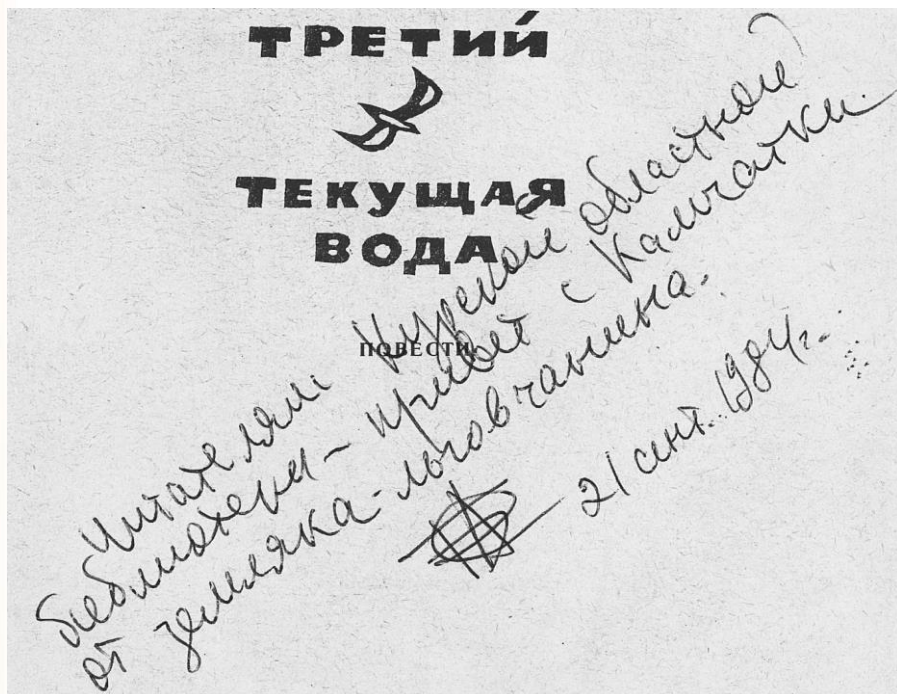 ТРЕТИЙ
ТЕКУЩАЯ
ВОДА
ПОВЕСТИ
Читателям Курской областной
библиотеки - привет с Камчатки
от земляка-льговчанина.
21 сент. 1984 г.